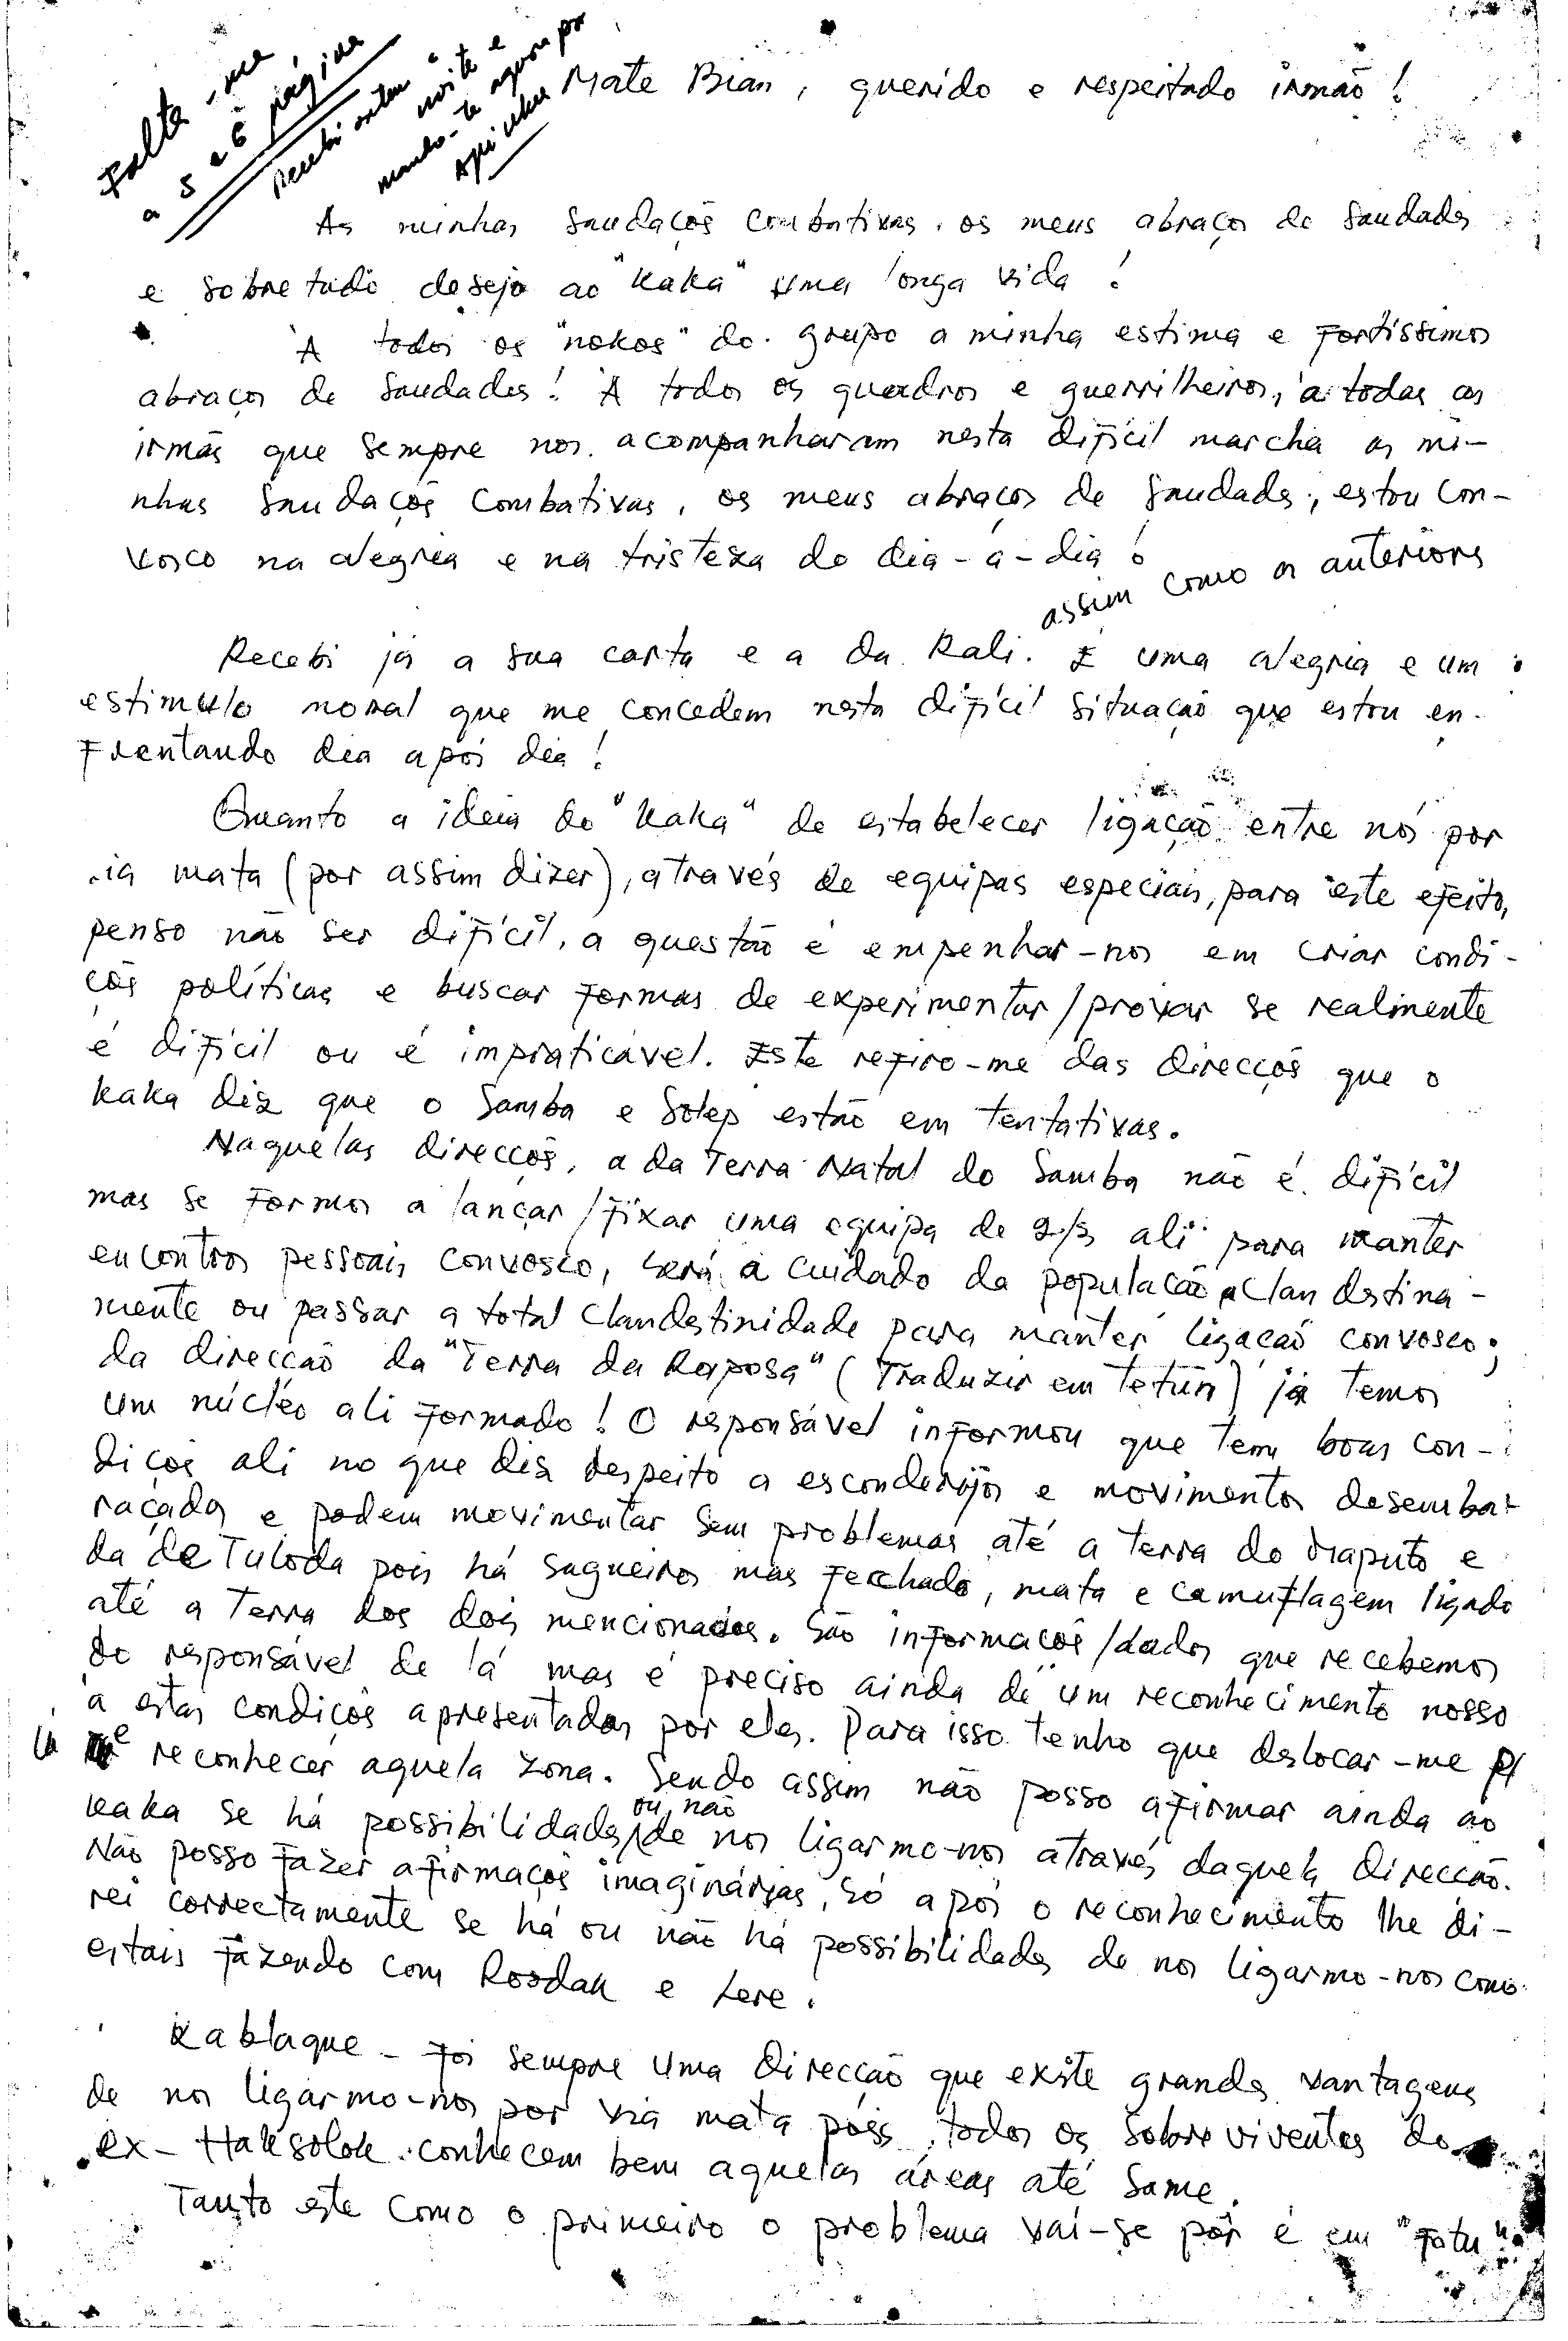 Falta-me
a 5 e 6 página
Recebi ontem à
noite e
mando-te agora por
Mate Bian, querido e respeitado irmão!
As minhas saudaçõs combativas, os meus abraços de saudades
e sobretudo desejo ao "Kaka" uma longa vida!
À todos os "nokos" do grupo a minha estima e fortíssimos
abraços de saudades! À todos os quadros e guerrilheiros, à todas as
irmãs que sempre nos acompanharam nesta difícil marcha as mi-
nhas saudaçõs combativas, os meus abraços de saudades, estou con-
vosco na alegria e na tristeza do dia-a-dia!
assim como os anteriores
Recebi já a sua carta e a da Rali. É uma alegria e um
estimulo moral que me concedem nesta difícil situação que estou en-
frentando dia após dia!
Quanto a ideia do "Kaka" de estabelecer ligação entre nós por
via mata (por assim dizer), através de equipas especiais, para este efeito,
penso não ser difícil, a questão é empenhar-nos em criar condi-
çõs políticas e buscar formas de experimentar/provar se realmente
é difícil ou é impraticável. Este refiro-me das direcçõs que o
Kaka diz que o Samba e Solep estão em tentativas.
Naquelas direcçõs, a da Terra Natal do Samba não é difícil
mas se formos a lançar/fixar uma equipa de 2/3 ali para manter
encontros pessoais convosco, será a cuidado da população clandestina-
mente ou passar a total clandestinidade para manter ligação convosco;
da direcção da "Terra da Raposa" (Traduzir em Tetun) já temos
um núcleo ali formado! O responsável informou que tem boas con-
diçõs ali no que diz respeito a esconderijos e movimentos desembar-
raçados e podem movimentar sem problemas até a terra do Maputo e
da de Tuloda pois há sagueiros mas fechado, mata e camuflagem ligado
até a Terra dos dois mencionados. São informaçõs/dados que recebemos
do responsável de lá mas é preciso ainda de um reconhecimento nosso
a estas condiçõs apresentadas por eles. Para isso tenho que deslocar-me p/
lá e reconhecer aquela zona. Sendo assim não posso afirmar ainda ao
Kaka se há possibilidades ou não de nos ligarmo-nos através daquela direcção.
Não posso fazer afirmaçõs imaginárias, só após o reconhecimento lhe di-
rei correctamente se há ou não há possibilidades de nos ligarmo-nos como
estais fazendo com Roodak e Lere.
Kablaque - foi sempre uma direcção que existe grandes vantagens
de nos ligarmo-nos por via mata pois todos os sobreviventes do
ex-Haksolok conhecem bem aquelas áreas até Same.
Tanto este como o primeiro o problema vai-se pôr é em "Fatu"